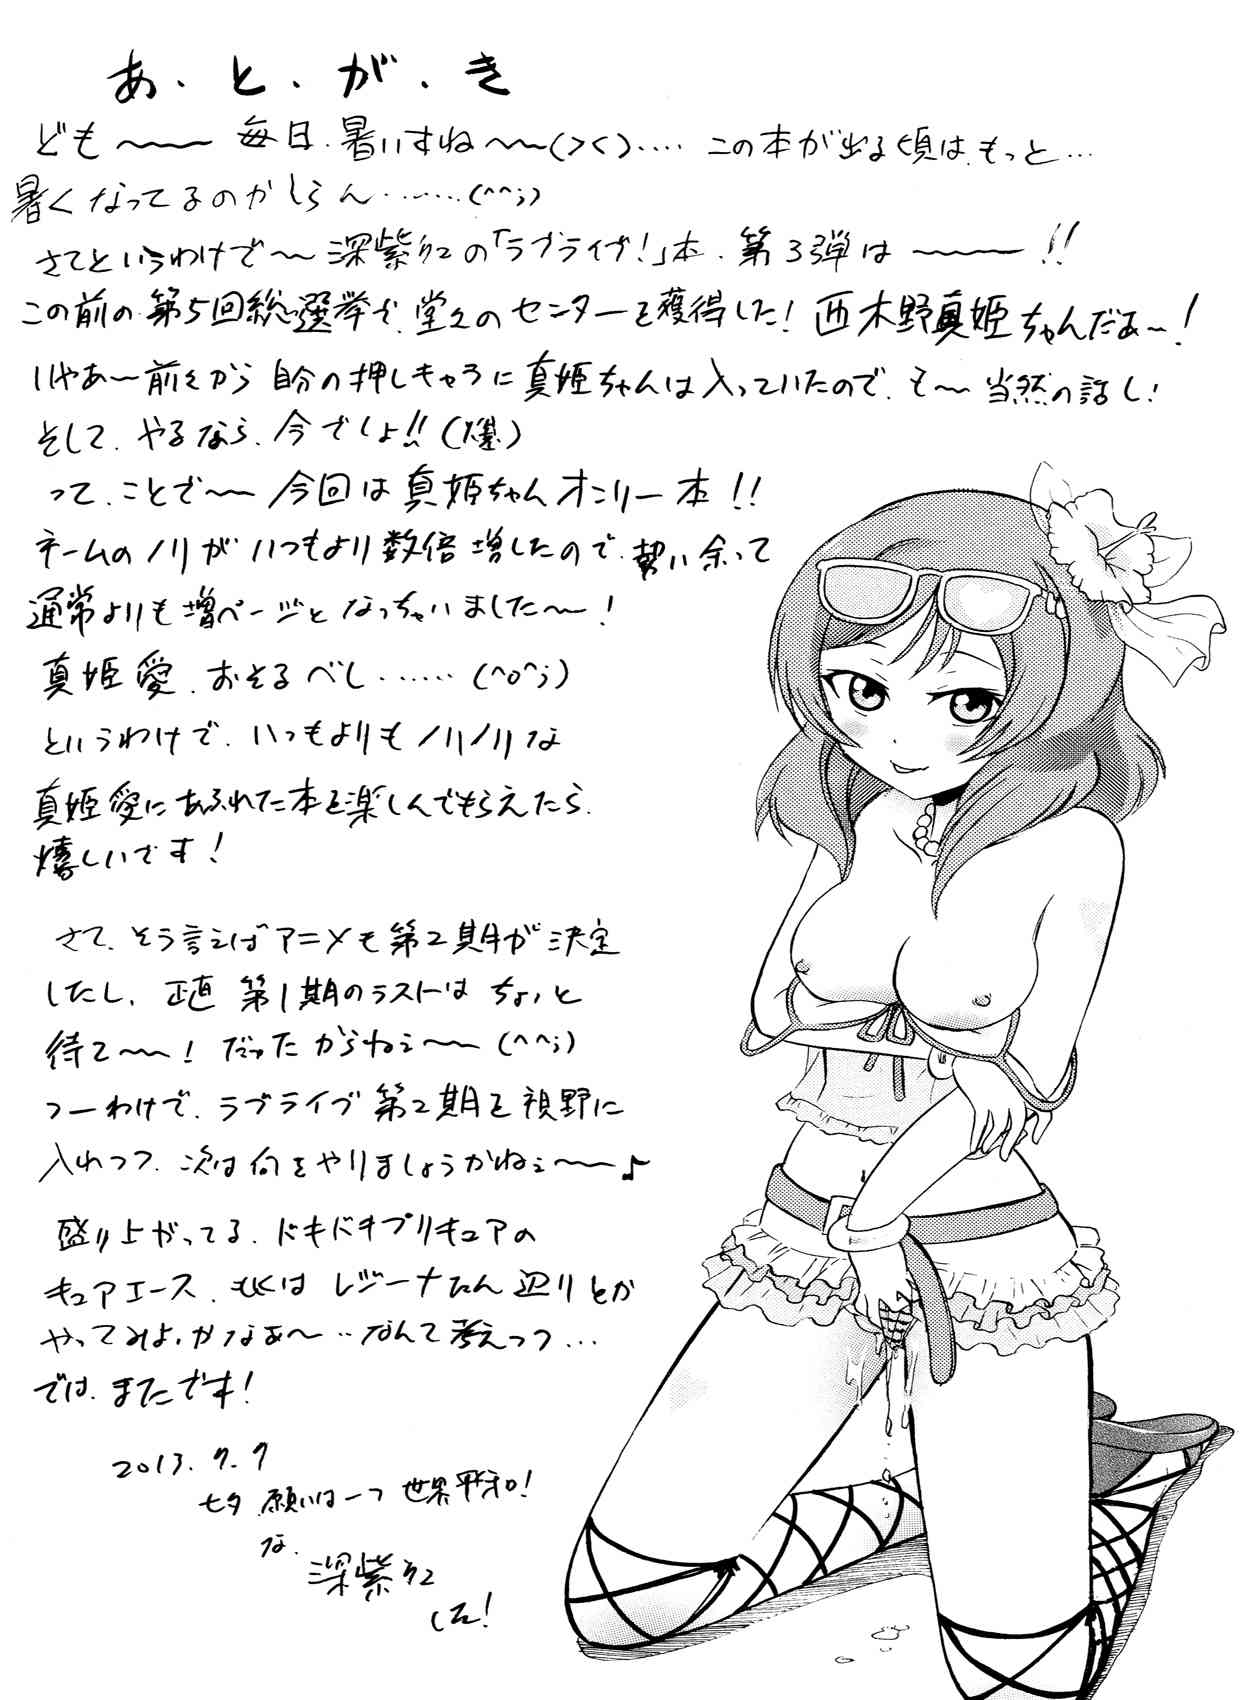 あ・と・が・き
ども〜〜〜 毎日、暑いすね〜〜(>く)‥‥ この本が出る頃は、もっと…
暑くなってるのかしらん‥‥‥(^^;)
さてというわけで〜〜 深紫紅の「ラブライブ!」本、第3弾は〜〜〜!!
この前の第5回総選挙で、堂々のセンターを獲得した! 西木野真姫ちゃんだぁ〜!
いやあ〜前々から自分の押しキャラに真姫ちゃんは入っていたので、も〜当然の話し!
そして、やるなら、今でしょ!!(爆)
って、ことで〜〜 今回は真姫ちゃんオンリー本!!
ネームのノリがいつもより数倍増したので、勢い余って
通常よりも増ページとなっちゃいました〜〜!
真姫愛、おそるべし‥‥‥(^o^;)
というわけで、いつもよりもノリノリな
真姫愛にあふれた本を楽しんでもらえたら、
嬉しいです!
さて、そう言えばアニメも第2期が決定
したし、正直 第1期のラストはちょっと
待て〜〜! だったからねぇ〜〜(^^;)
つーわけで、ラブライブ第2期を視野に
入れつつ、次は何をやりましょうかねぇ〜〜♪
盛り上がってる、ドキドキプリキュアの
キュアエース、もしくはレジーナたん辺りとか
やってみよっかなぁ〜‥なんて考えつつ…
では、またです!
2013.7.7
七夕 願いは一つ 世界平和!
な、
深紫紅
でした!